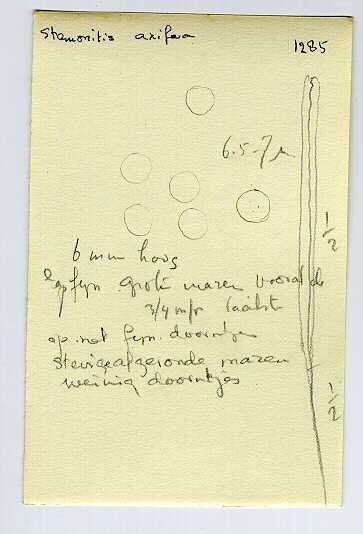 Stemonitis axifera
1285
6.5-7µ
1/2
6 mm hoog
fyn grote mazen vooral de
3/4 laatst
op. net fyn. doorntjes
stevige afgeronde mazen
weinig doorntjes
1/2